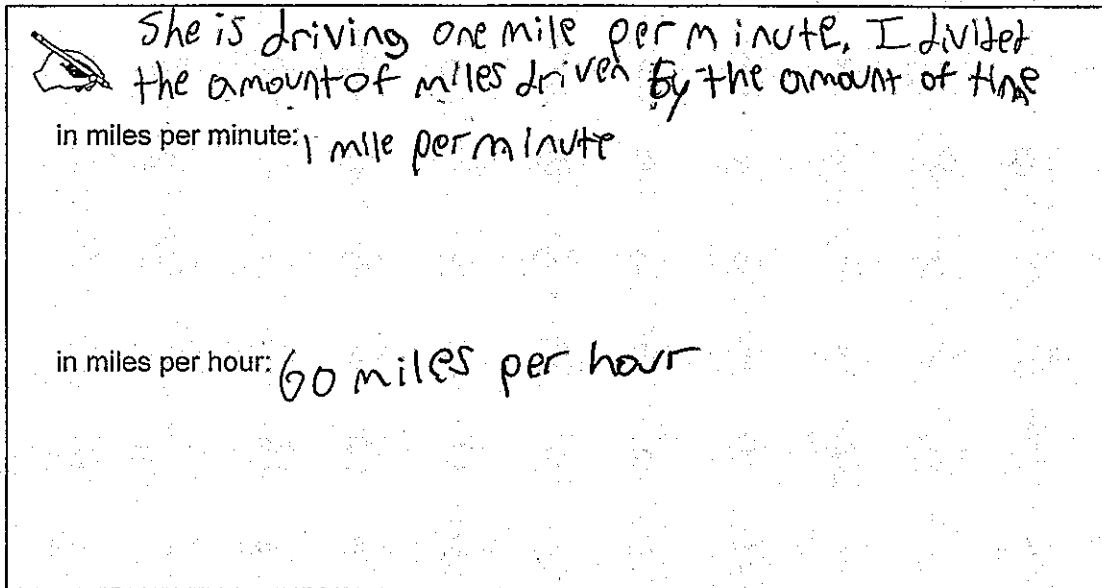 She is driving one mile per minute. I divited
the amount of miles driven by the amount of time
in miles per minute: 1 mile per minute
in miles per hour: 60 miles per hour